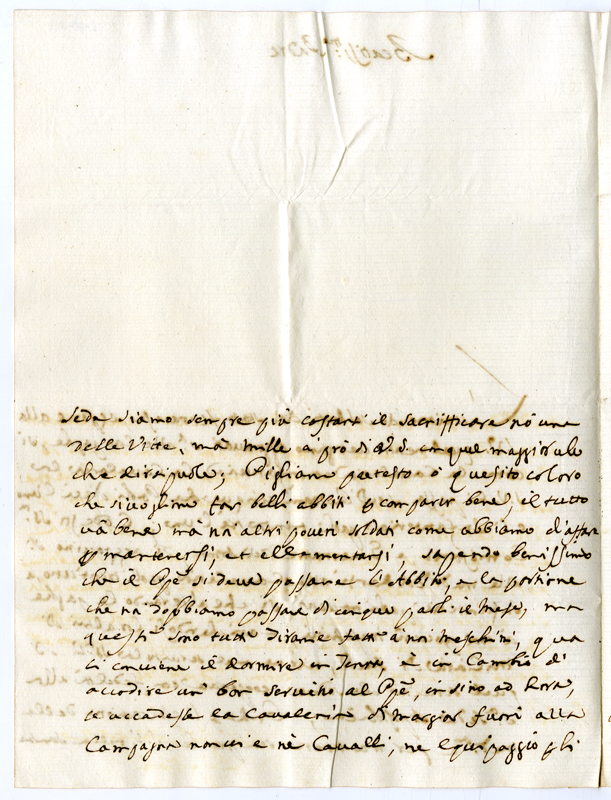 Sede siamo sempre più costanti il sacrificare nò una
delle Vite, mà mille à prò di V. S. cinque maggior ale
che dirsi puole; Pigliano pretesto ò quesito coloro
che si vogliono far belli abbiti p comparir bene, il tutto
và bene mà nà altri poveri soldati come abbiamo d'affare
p mantenersi, et ellementarsi, sapendo benissimo
che il Pñe si deve passare l'Abbito, e la portione
che nà dobbiamo passare di cinque paoli il mese, ma
questi sono tutti tiranie fatti à noi meschini, qua
ci conviene il dormire in Terra, è in Cambio di
accodire un bon servitio al Pñe, insino ad hora,
se accadesse la Cavaleria di marciar fuori alla
Campagna non vi è nè Cavalli, ne Equipaggio gli